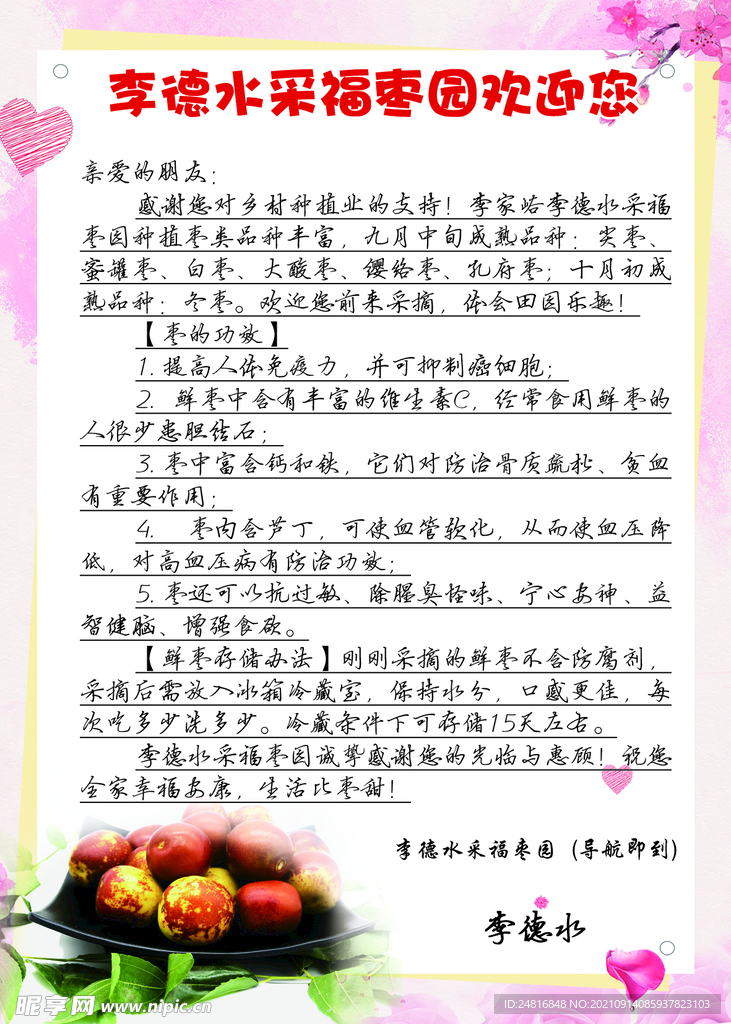 李德水采福枣园欢迎您
亲爱的朋友：
感谢您对乡村种植业的支持！李家峪李德水采福
枣园种植枣类品种丰富，九月中旬成熟品种：尖枣、
蜜罐枣、白枣、大酸枣、缨络枣、孔府枣；十月初成
熟品种：冬枣。欢迎您前来采摘，体会田园乐趣！
【枣的功效】
1.提高人体免疫力，并可抑制癌细胞；
2. 鲜枣中含有丰富的维生素C，经常食用鲜枣的
人很少患胆结石；
3.枣中富含钙和铁，它们对防治骨质疏松、贫血
有重要作用；
4. 枣内含芦丁，可使血管软化，从而使血压降
低，对高血压病有防治功效；
5.枣还可以抗过敏、除腥臭怪味、宁心安神、益
智健脑、增强食欲。
【鲜枣存储办法】刚刚采摘的鲜枣不含防腐剂，
采摘后需放入冰箱冷藏室，保持水分，口感更佳，每
次吃多少洗多少。冷藏条件下可存储15天左右。
李德水采福枣园诚挚感谢您的光临与惠顾！祝您
全家幸福安康，生活比枣甜！
李德水采福枣园（导航即到）
李德水
昵享网 www.nipic.cn
ID:24816848 NO:20210914085937823103